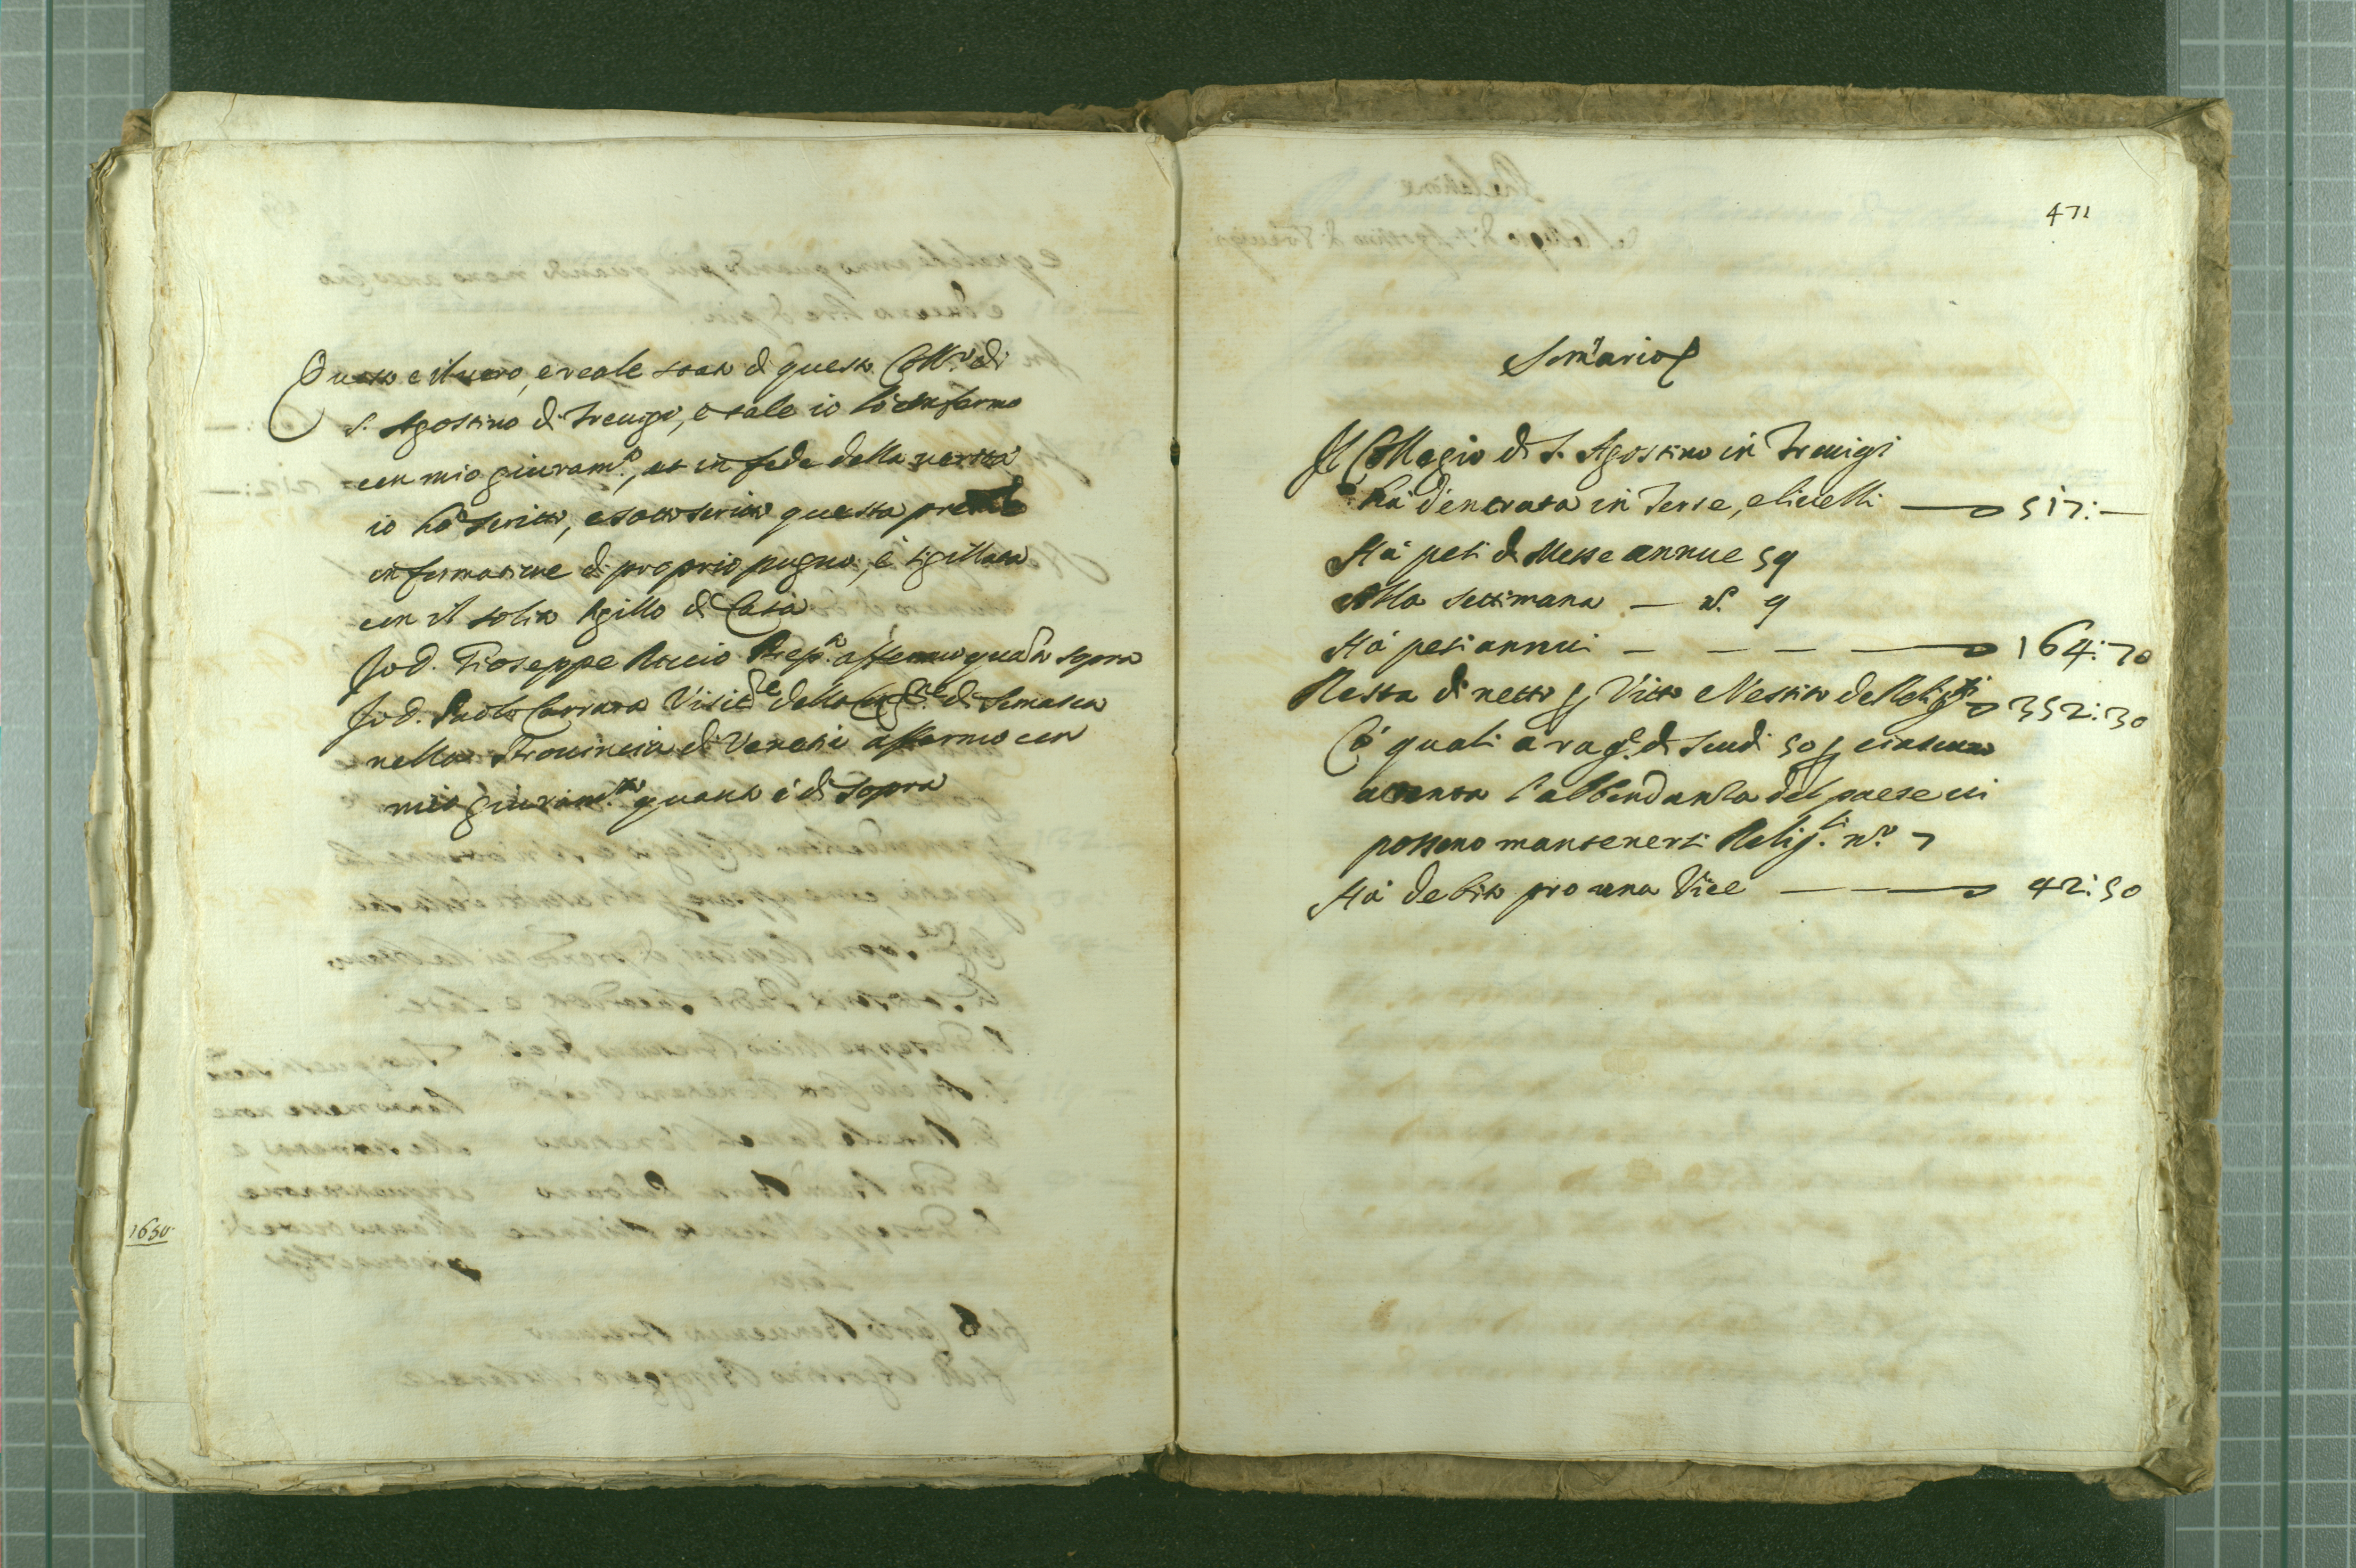 Questo e il uero, e reale stato di questo Coll.º di
S. Agostino di Treuigi, e tale io lo confermo
con mio giuram.to, et in fede della uerita
io hò scritto, e sottoscritto questa pre.te
informatione di proprio pugno, e sigillata
con il solito sigillo di Casa
Io d. Gioseppe Prep.to affermo quanto sopra
Io d. Paolo Carrara Visit.re della Cong.ne di Somasca
nella Prouincia di Venetia affermo con
mio giuram.to quanto è di sopra
1650.
471
Som̃ario
Il Collegio di S. Agostino in Treuigi
hà d'entrata in Terre, e liuelli — 517:—
Hà pesi di Messe annue 59
Alla settimana — n.º 9
Hà pesi annui — — — — 164:70
Resta di netto p Vitto e Vestito de Relig.si 352:30
Cò quali a rag.e di scudi 50 p ciascuno
attenta l'abbondanza del paese ui
possono mantenersi Relig.si n.º 7
Hà debito pro una Vice — 42:50